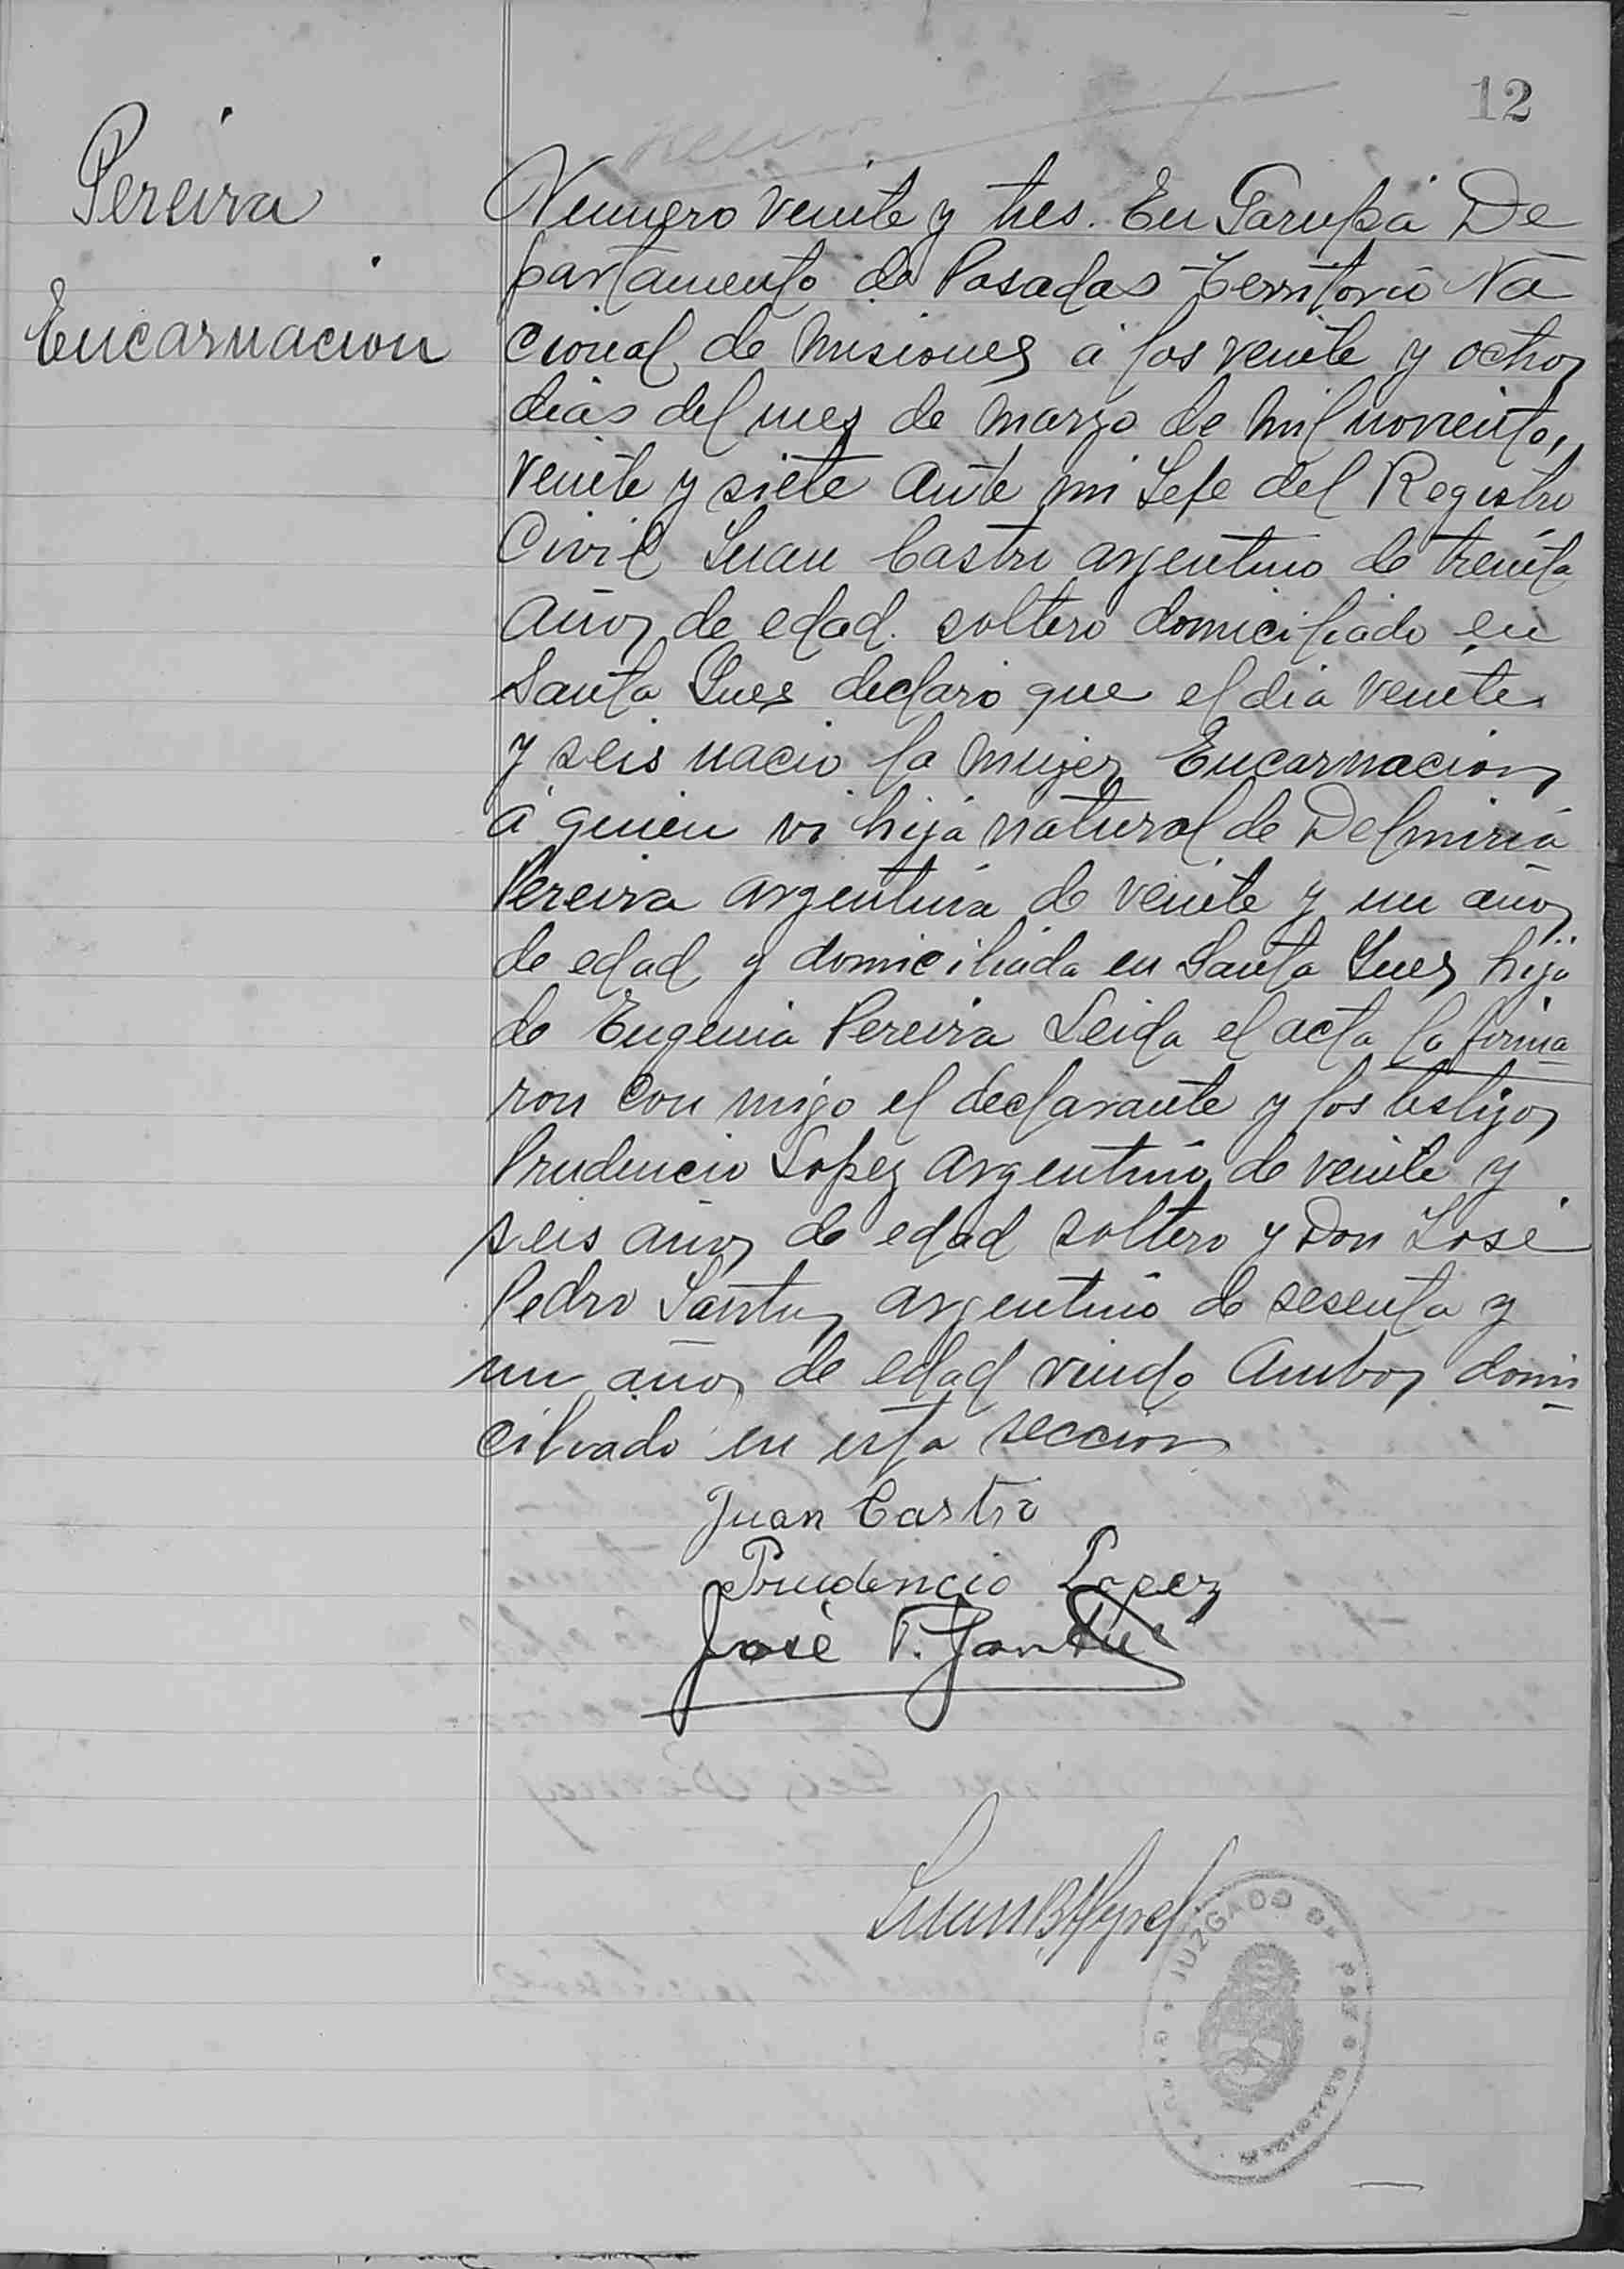 12
Pereira
Encarnacion
Numero veinte y tres. En Garupá De
partamento de Posadas Territorio Na
cional de Misiones á los veinte y ocho
dias del mes de marzo de mil novecientos
veinte y siete ante mi Jefe del Registro
Civil Juan Castro argentino de treinta
años de edad. soltero domiciliado en
Santa Ines declaró que el dia veinte
y seis nació la mujer Encarnacion
á quien vi hija natural de Delmiria
Pereira argentina de veinte y un años
de edad y domiciliada en Santa Ines hija
de Eugenia Pereira Leida el acta la firma
ron con migo el declarante y los testigos
Prudencio Lopez argentino de veinte y
seis años de edad soltero y Don José
Pedro argentino de sesenta y
un años de edad viudo Ambos domi
ciliado en esta seccion
Juan Castro
Prudencio Lopez
José P.
Juan B.
JUZGADO DE PAZ